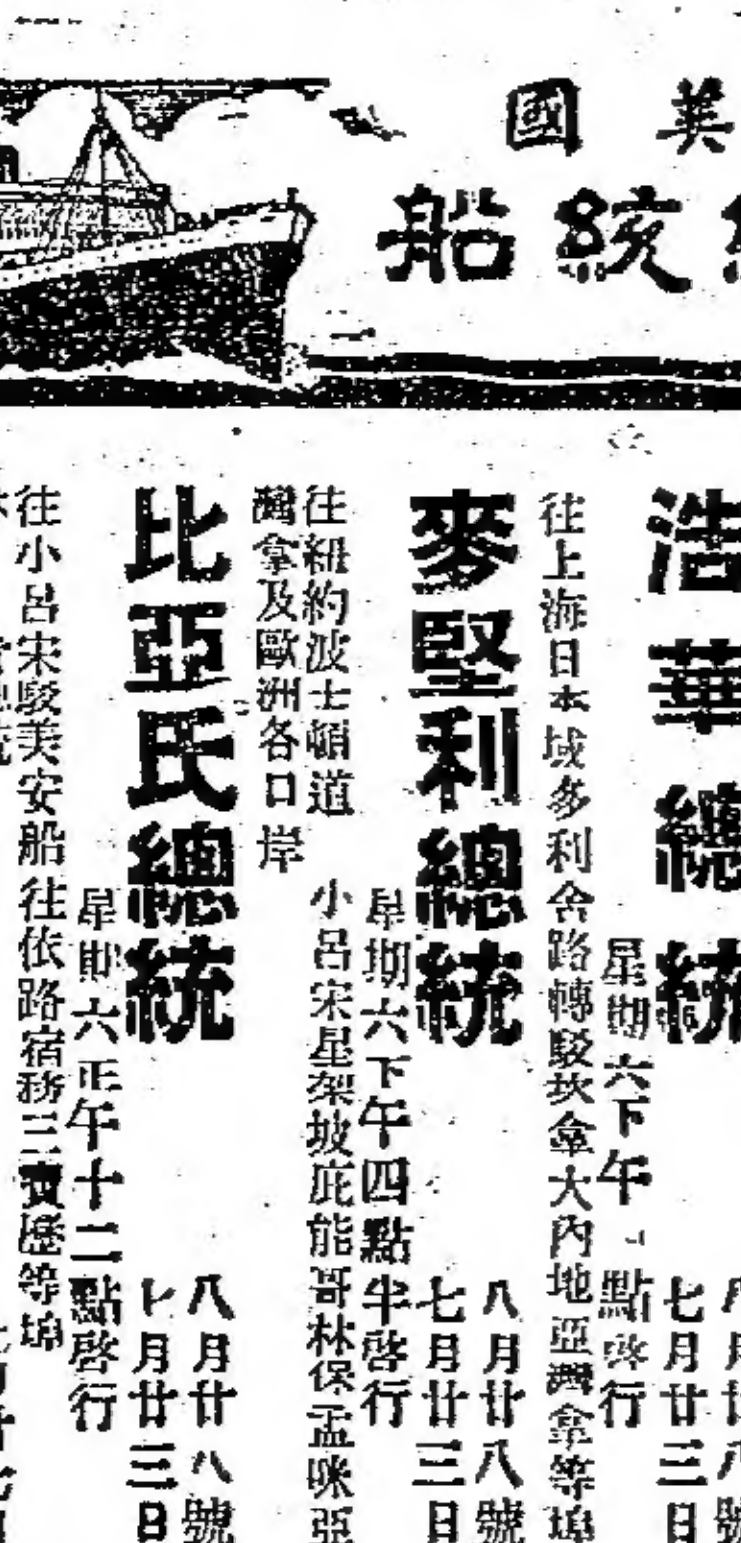 美國
統船
浩華總統
八月廿八號
七月廿三日
星期六下午一點啓行
往上海日本域多利舍路轉駁坎拿大內地亞灣拿等埠
麥堅利總統
八月廿八號
七月廿三日
星期六下午四點半啓行
往紐約波士頓道 小呂宋星架坡庇能哥林保孟咪亞
灣拿及歐洲各口岸
比亞氏總統
八月廿八號
七月廿三日
星期六正午十二點啓行
往小呂宋駁美安船往依路宿務三寶歷等埠